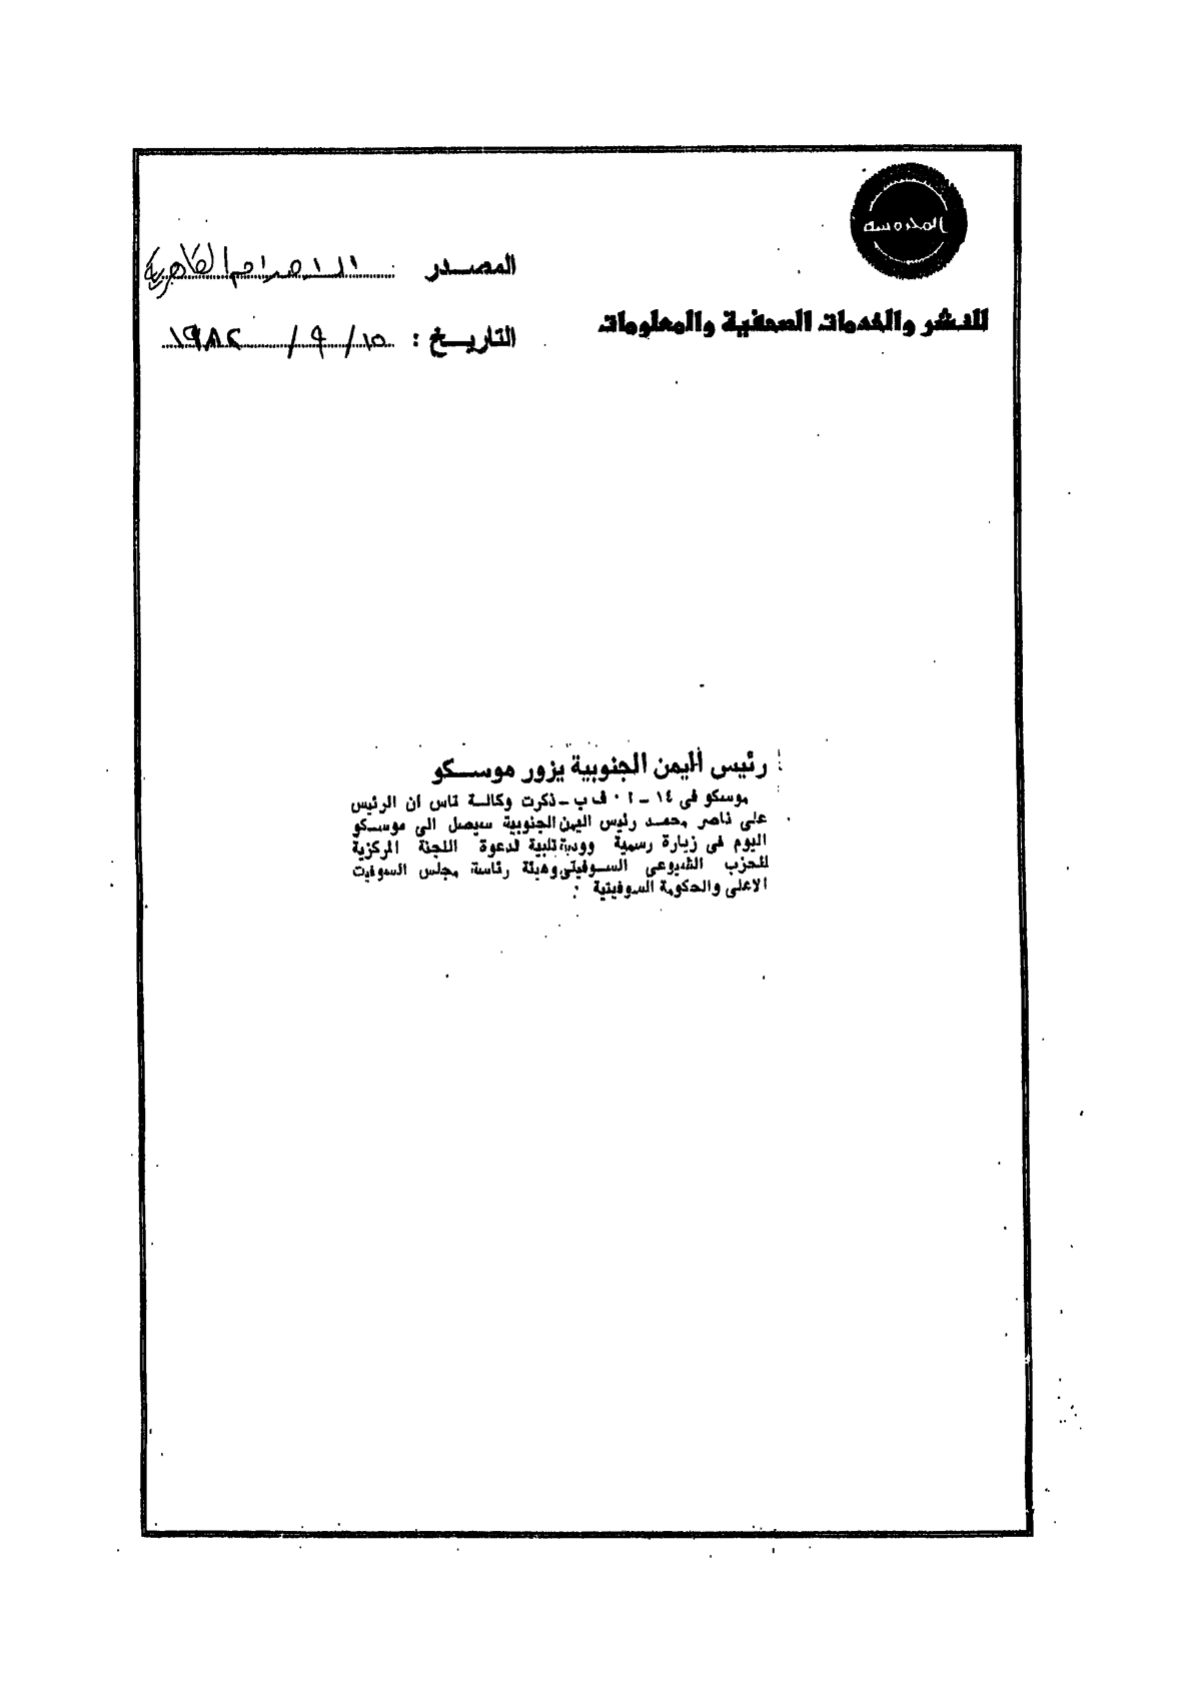 المحروسة
للنشر والخدمات الصحفية والمعلومات
المصدر : الاهرام القاهرية
التاريخ : ١٥ / ٩ / ١٩٨٢
رئيس اليمن الجنوبية يزور موسكو
موسكو فى ١٤ ـ ا ٠ ف ب ـ ذكرت وكالة تاس ان الرئيس
على ناصر محمد رئيس اليمن الجنوبية سيصل الى موسكو
اليوم فى زيارة رسمية وودية تلبية لدعوة اللجنة المركزية
للحزب الشيوعى السوفيتى وهيئة رئاسة مجلس السوفيت
الاعلى والحكومة السوفيتية :